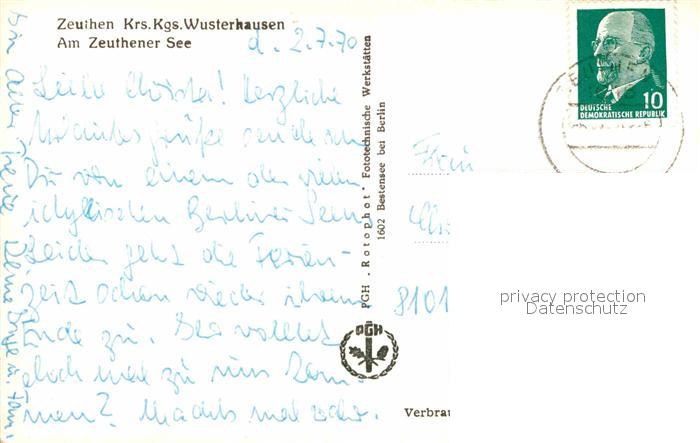 Zeuthen Krs. Kgs. Wusterhausen
Am Zeuthener See
d. 2.7.70
Liebe Christa! Herzliche
Urlaubsgrüße sende ich
Dir von einem der vielen
idyllischen Berliner Seen.
Leider geht die Ferien-
zeit schon wieder ihrem
Ende zu.
doch mal zu uns kom-
men? Macht's mal wahr.
In alter Treue Deine Inge u. Fam.
PGH „Rotophot“ Fototechnische Werkstätten
1602 Bestensee bei Berlin
PGH
DEUTSCHE
DEMOKRATISCHE REPUBLIK
10
Frau
8101
privacy protection
Datenschutz
Verbrau